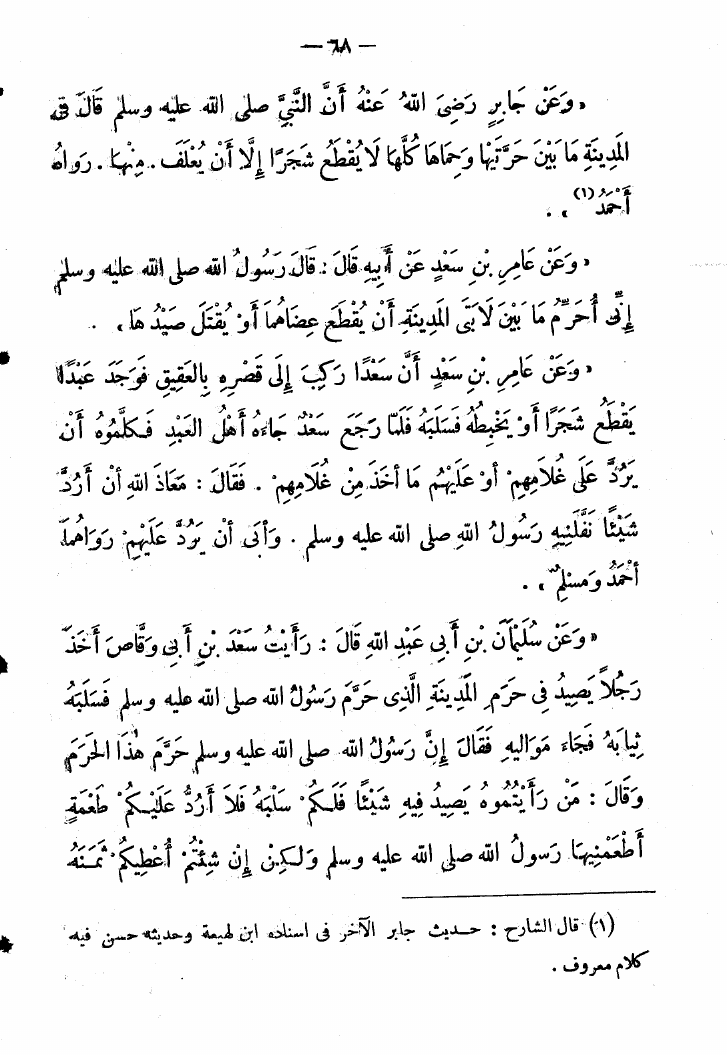 — ٦٨ —
« وَعَنْ جَابِرٍ رَضِىَ اللهُ عَنْهُ أَنَّ النَّبِىَّ صلى الله عليه وسلم قَالَ فى
المَدِينَةِ مَا بَيْنَ حَرَّتَيْهَا وَحِمَاهَا كُلَّهَا لَا يُقْطَع شَجَرًا إِلَّا أَنْ يُعْلَف . مِنْهَا . رَوَاهُ
أَحْمَدُ (١) » .
« وَعَنْ عَامِرِ بْنِ سَعْدٍ عَنْ أَبِيهِ قَالَ : قَالَ رَسُولُ الله صلى الله عليه وسلم
إِنِّى أُحَرِّمُ مَا بَيْنَ لَابَتَىِ المَدِينَةِ أَنْ يُقْطَعَ عِضَاهُمَا أَوْ يُقْتَلَ صَيْدُ هَا » .
« وَعَنْ عَامِرِ بْنِ سَعْدٍ أَنَّ سَعْدًا رَكِبَ إِلَى قَصْرِهِ بِالعَقِيقِ فَوَجَدَ عَبْدًا
يَقْطَعُ شَجَرًا أَوْ يَخْبِطُهُ فَسَلَبَهُ فَلَمَّا رَجَعَ سَعْدٌ جَاءَهُ أَهْلُ العَبْدِ فَكَلَّمُوهُ أَنْ
يَرُدَّ عَلَى غُلَامِهِمْ أَوْ عَلَيْهِمْ مَا أَخَذَ مِنْ غُلَامِهِمْ . فَقَالَ : مَعَاذَ اللهِ أَنْ أَرُدَّ
شَيْئًا نَفَّلَنِيهِ رَسُولُ اللهِ صلى الله عليه وسلم . وَأَبَى أَنْ يَرُدَّ عَلَيْهِمْ رَوَاهُمَا
أَحْمَدُ وَمسلِمٌ » .
« وَعَنْ سُلَيْمَانَ بْنِ أَبِى عَبْدِ اللهِ قَالَ : رَأَيْتُ سَعْدَ بْنِ أَبِى وَقَّاصٍ أَخَذَ
رَجُلاً يَصِيدُ فِى حَرَمِ المَدِينَةِ الَّذِى حَرَّمَ رَسُولُ الله صلى الله عليه وسلم فَسَلَبَهُ
ثِيَابَهُ فَجَاءَ مَوَالِيهِ فَقَالَ إِنَّ رَسُولُ الله صلى الله عليه وسلم حَرَّمَ هٰذَا الحَرَمَ
وَقَالَ : مَنْ رَأَيْتُمُوهُ يَصِيدُ فِيهِ شَيْئًا فَلَكُمْ سَلَبُهُ فَلَا أَرُدُّ عَلَيْكُمْ طَعْمَةً
أَطْعَمَنِيهَا رَسولُ الله صلى الله عليه وسلم وَلٰكِنْ إِنْ شِئْتُمْ أُعْطِيكُمْ ثَمَنَهُ
(١) قال الشارح : حديث جابر الآخر فى اسناده ابن لهيعة وحديثه حسن فيه
كلام معروف .